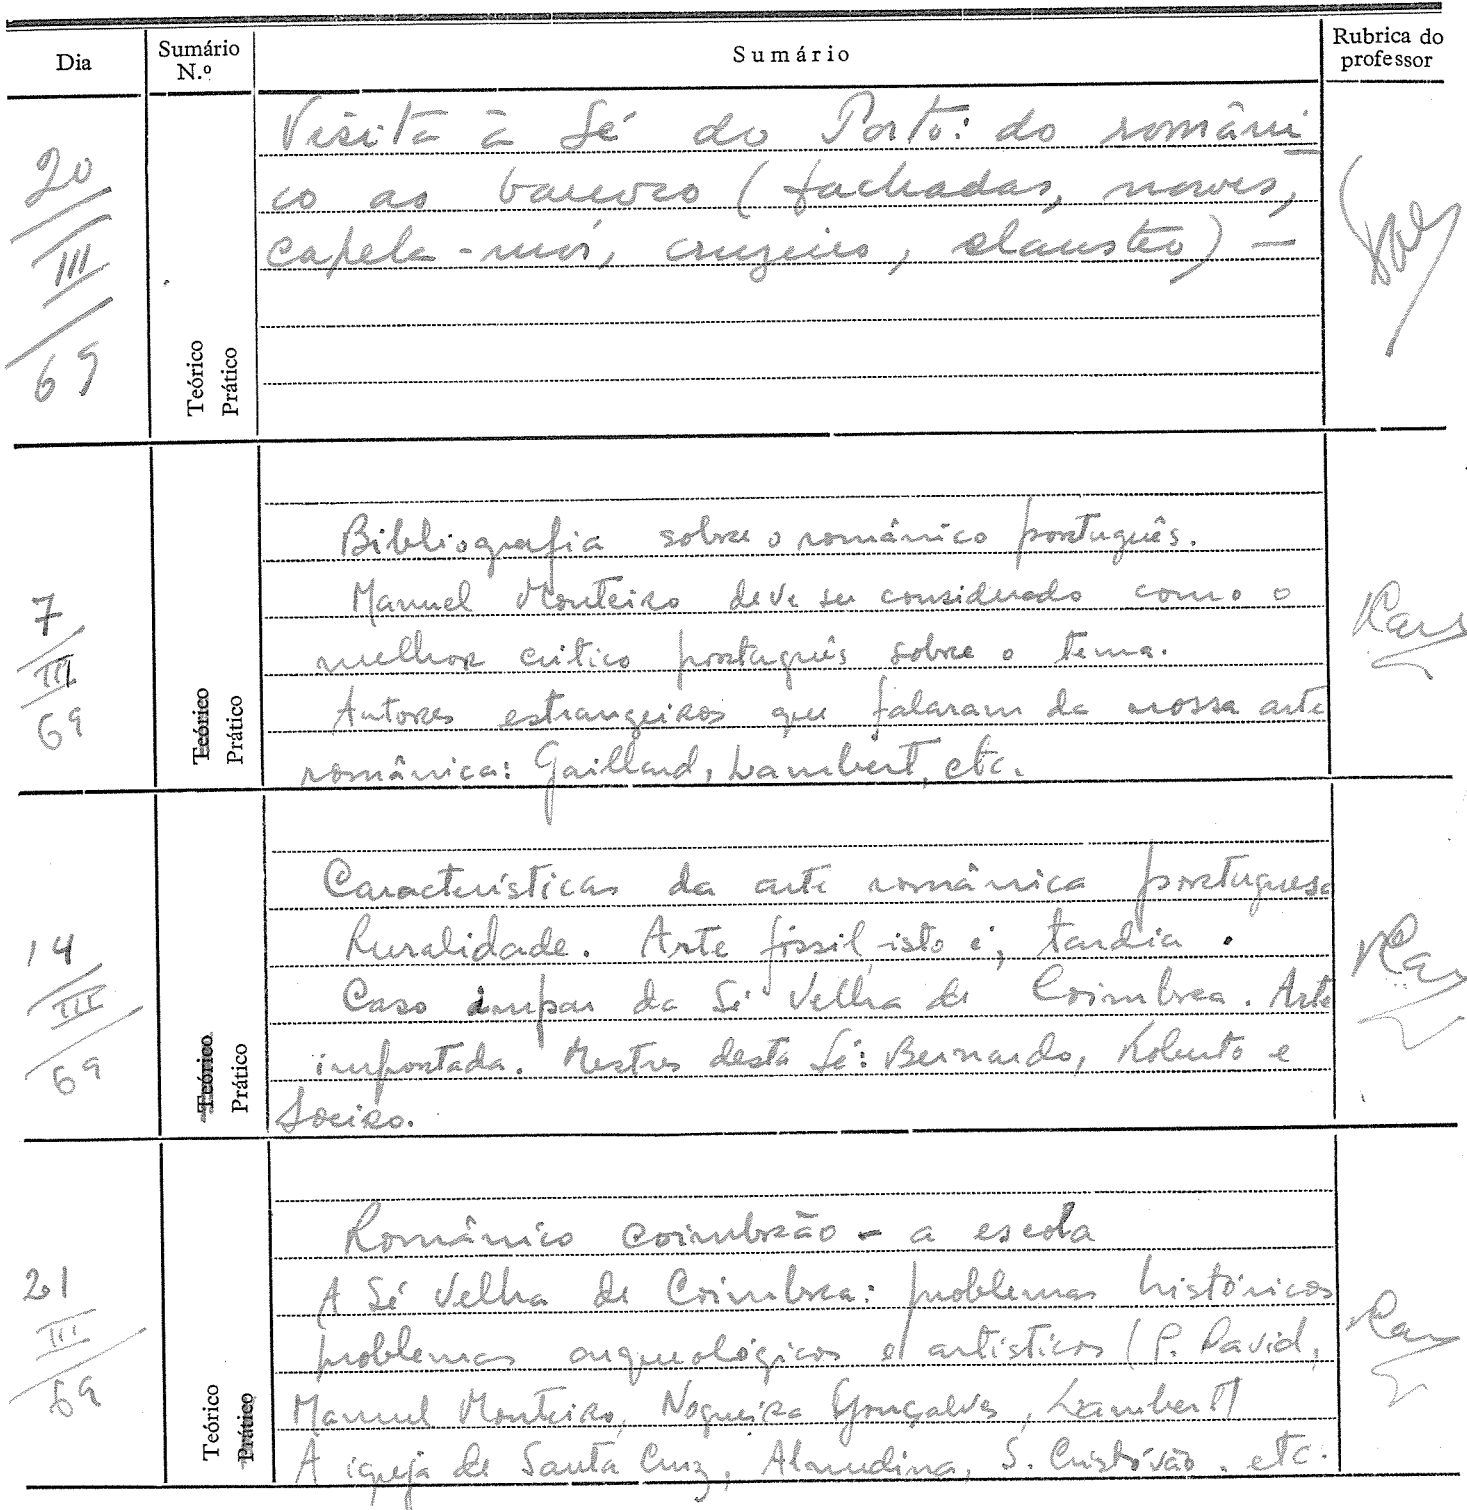 Dia
Sumário N.º
Sumário
Rubrica do professor
20
III
69
Teórico
Prático
Visita à Sé do Porto: do români
co ao barroco (fachadas, naves,
capela-mór, cruzeiro, claustro) —
7
III
69
Teórico
Prático
Bibliografia sobre o românico português.
Manuel Monteiro deve ser considerado como o
melhor crítico português sobre o tema.
Autores estrangeiros que falaram da nossa arte
românica: Gaillard, Lambert, etc.
14
III
69
Teórico
Prático
Características da arte românica portuguesa
Ruralidade. Arte fóssil, isto é, tardia.
Caso impar da Sé Velha de Coimbra. Arte
importada. Mestres desta Sé: Bernardo, Roberto e
Soeiro.
21
III
69
Teórico
Prático
Românico coimbrão - a escola
A Sé Velha de Coimbra: problemas históricos
problemas arqueológicos e artísticos (P. David,
Manuel Monteiro, Nogueira Gonçalves, Lambert)
A igreja de Santa Cruz, Almedina, S. Cristóvão. etc.